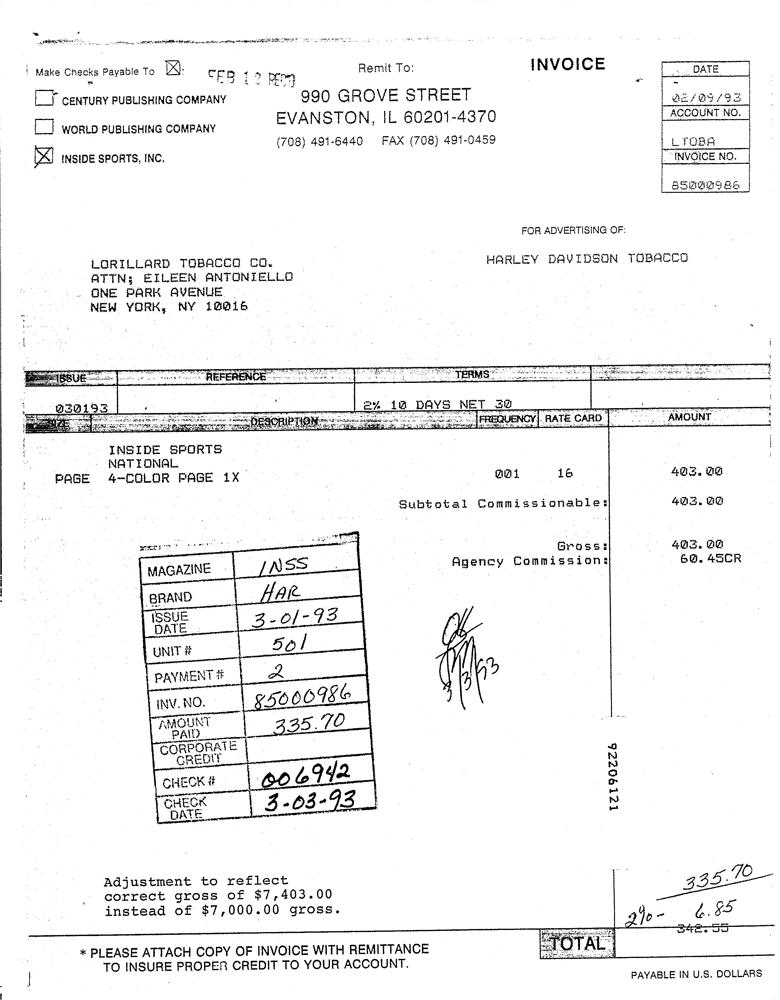 Make Checks Payable To ☒:
FEB 12 REC'D
Remit To:
INVOICE
CENTURY PUBLISHING COMPANY
WORLD PUBLISHING COMPANY
INSIDE SPORTS, INC.
990 GROVE STREET
EVANSTON, IL 60201-4370
(708) 491-6440 FAX (708) 491-0459
DATE
02/09/93
ACCOUNT NO.
LTOBA
INVOICE NO.
85000986
FOR ADVERTISING OF:
HARLEY DAVIDSON TOBACCO
LORILLARD TOBACCO CO.
ATTN; EILEEN ANTONIELLO
ONE PARK AVENUE
NEW YORK, NY 10016
ISSUE REFERENCE TERMS
030193 2% 10 DAYS NET 30
SIZE DESCRIPTION FREQUENCY RATE CARD AMOUNT
INSIDE SPORTS
NATIONAL
PAGE 4-COLOR PAGE 1X 001 16 403.00
Subtotal Commissionable: 403.00
Gross: 403.00
Agency Commission: 60.45CR
MAGAZINE INSS
BRAND HAR
ISSUE DATE 3-01-93
UNIT # 501
PAYMENT # 2
INV. NO. 85000986
AMOUNT PAID 335.70
CORPORATE CREDIT
CHECK # 006942
CHECK DATE 3-03-93
OK
3/3/93
92206121
Adjustment to reflect
correct gross of $7,403.00
instead of $7,000.00 gross.
335.70
2% - 6.85
342.55
TOTAL
* PLEASE ATTACH COPY OF INVOICE WITH REMITTANCE
TO INSURE PROPER CREDIT TO YOUR ACCOUNT.
PAYABLE IN U.S. DOLLARS